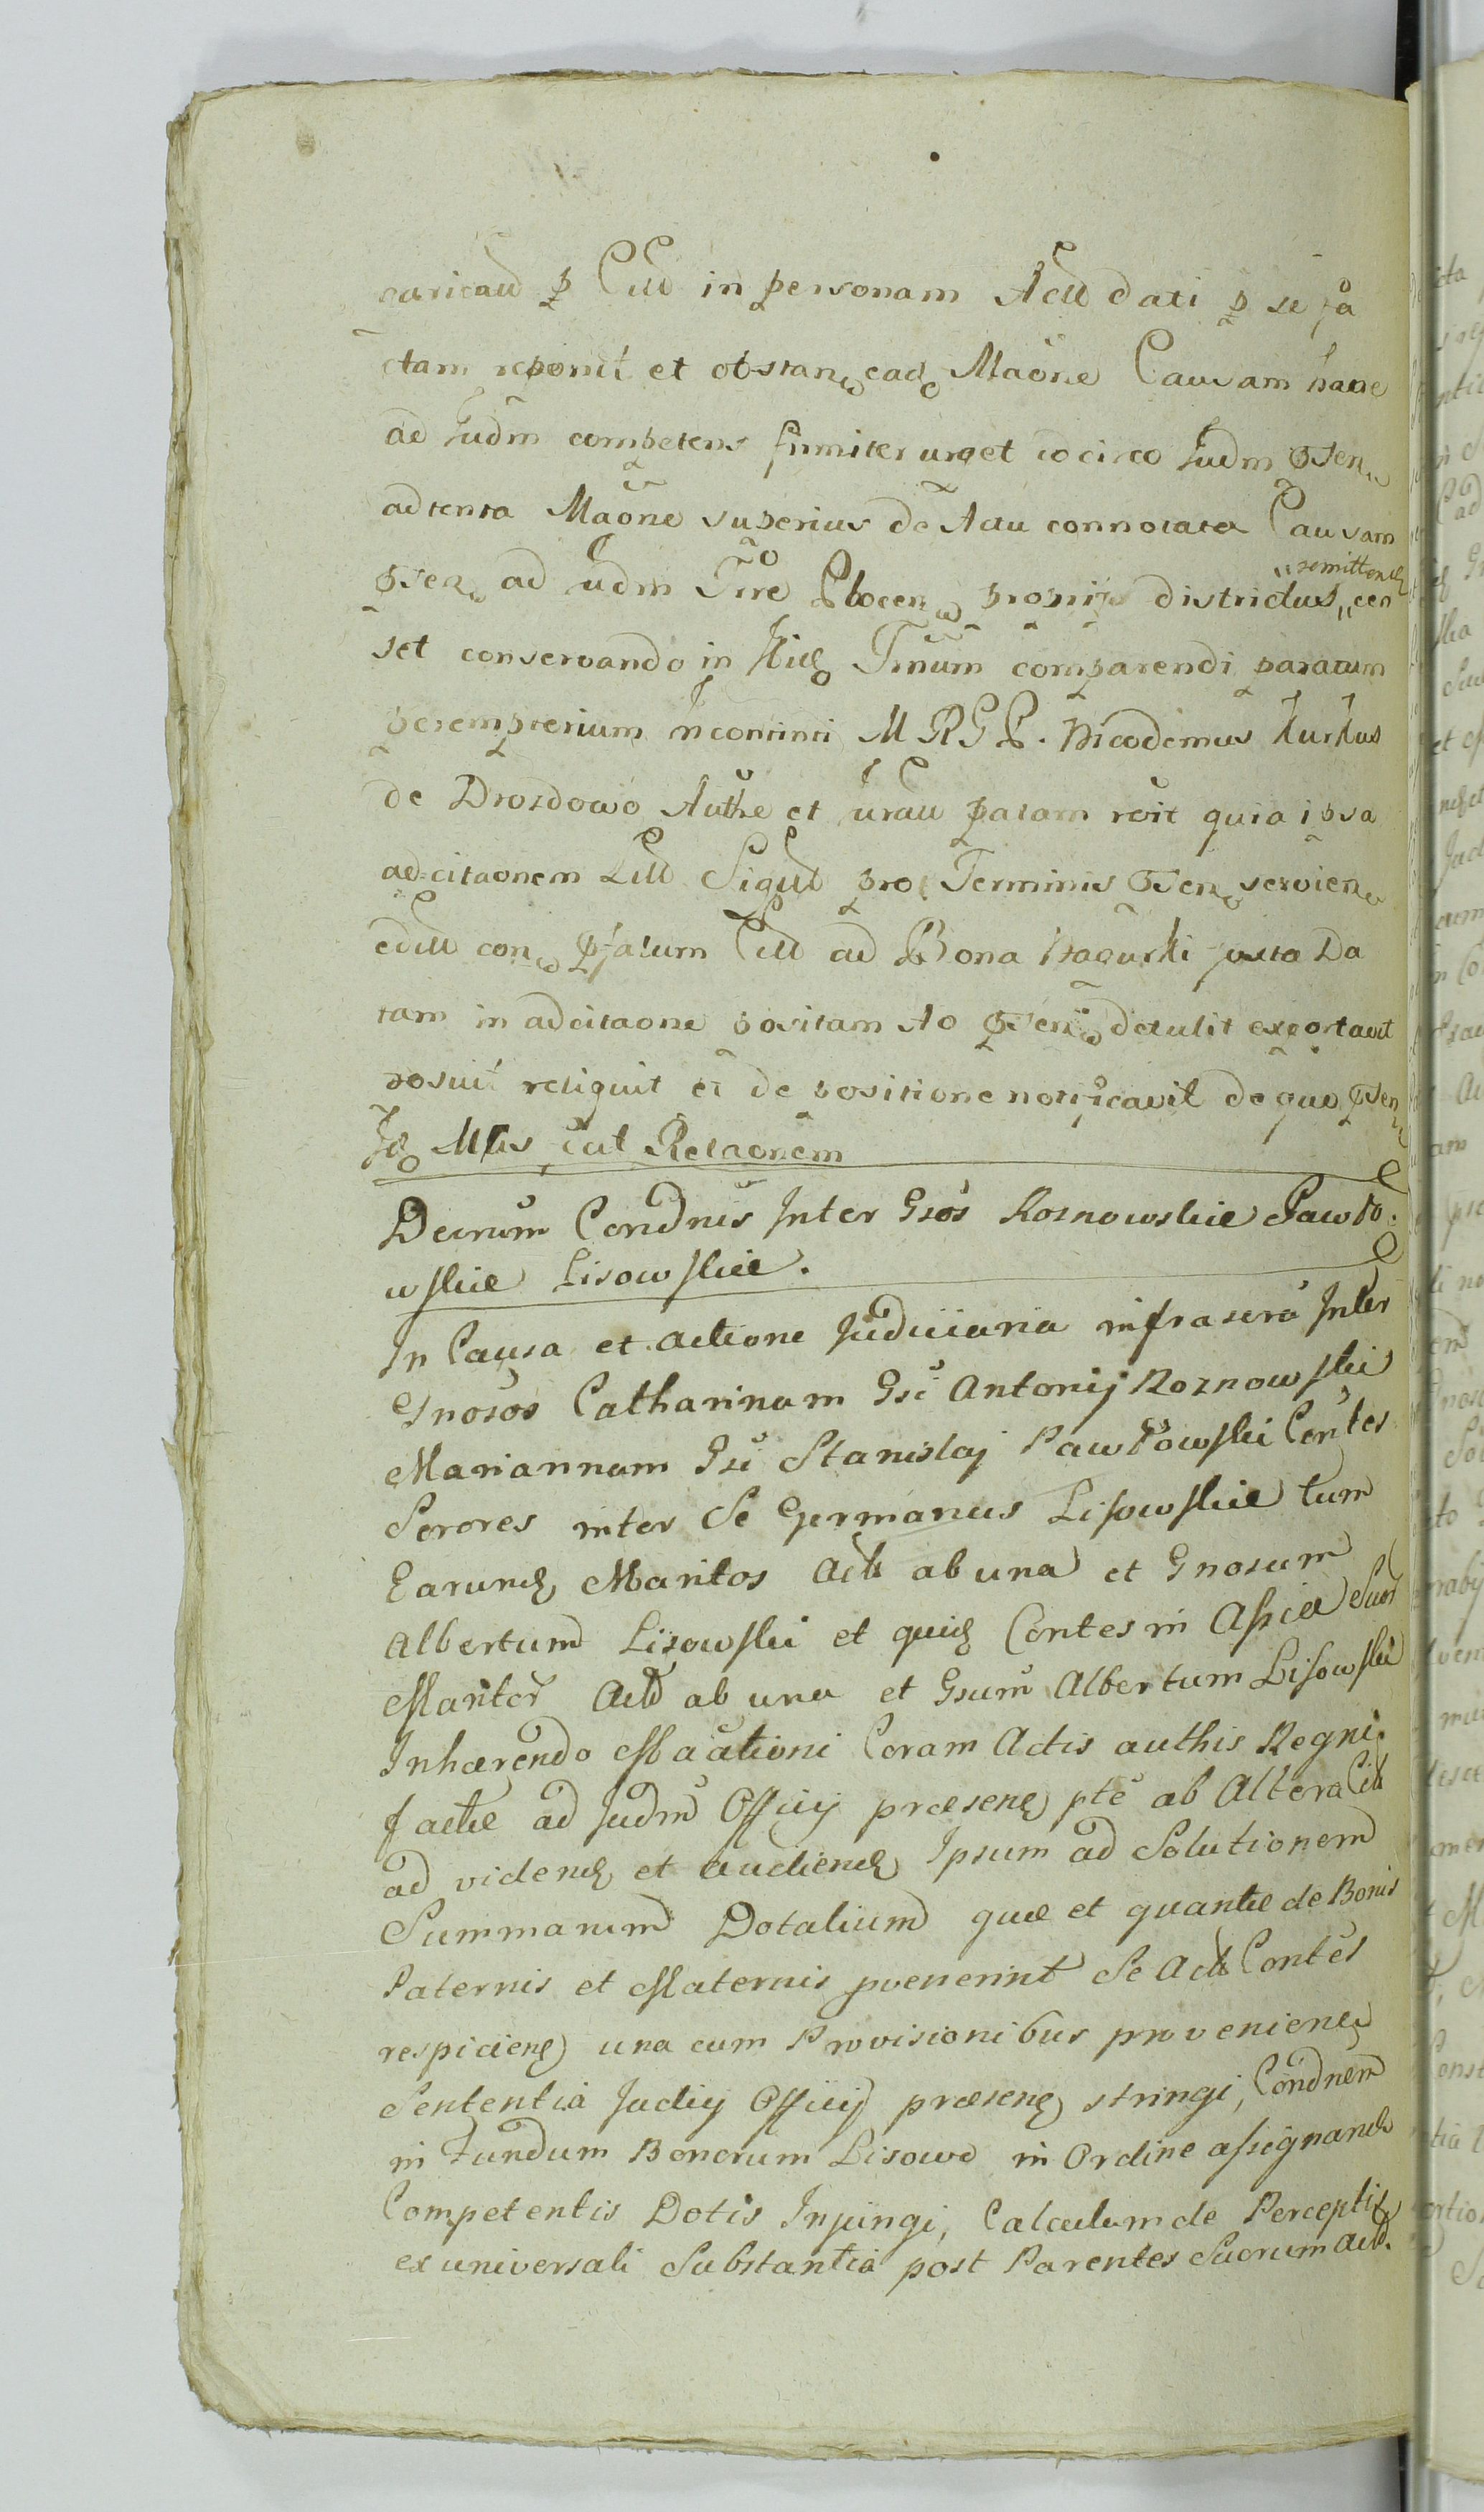 in personam Actt dati p se fa
ctam et obstan ead Maone Causam hanc
ad Judm competens firmiter urget idcirco Judm pnsen
ad tenta Maone superius de Actu connotata Causam
pnsen ad Judm Trre Plocen proprij districtus „cen
„remitten
set conservando in Tmum comparendi paratum
peremptorium MRGP. Nicodemus Kurkus
de Drozdowo Authe et palam rcit quia ipsa
adcitaonem Litt Sigill pro Terminis pnsen servien
con Citt ad Bona Nagurki juxta Da
tam in adcitaone positam Ao pnsen detulit exportavit
posuit reliquit et de positione notificavit de quo pnsen
Relaonem
Decrum Condnis Inter Gsos Koznowskie Pawło.
wskie Lisowskie.
In Causa et actione Judiciaria infrascra Inter
Gnosos Catharinam Gsi Antonij Koznowski
Mariannam Gsi Stanislaj Pawłowski Contes
Sorores inter Se Germanas Lisowskie tum
Earund Maritos Actt ab una et Gnosum
Albertum Lisowski et quid Contes in Assia Suor
Maritor Actt ab una et Gsum Albertum Lisowski
Inhærendo Maationi Coram Actis authis Regni
factæ ad Judm Officij præsens pte ab Altera Citt
ad videnđ et audienđ Ipsum ad Solutionem
Summarum Dotalium quæ et quantæ de Bonis
Paternis et Maternis pvenerint Se Actt Contes
respiciens una cum Provisionibus proveniens
Sententia Judij Officij præsens stringi, Condnem
in Fundum Bonorum Lisowo in Ordine assignandæ
Competentis Dotis Injungi, Calculum de Perceptis
ex universali Substantia post Parentes Suorum Actt.